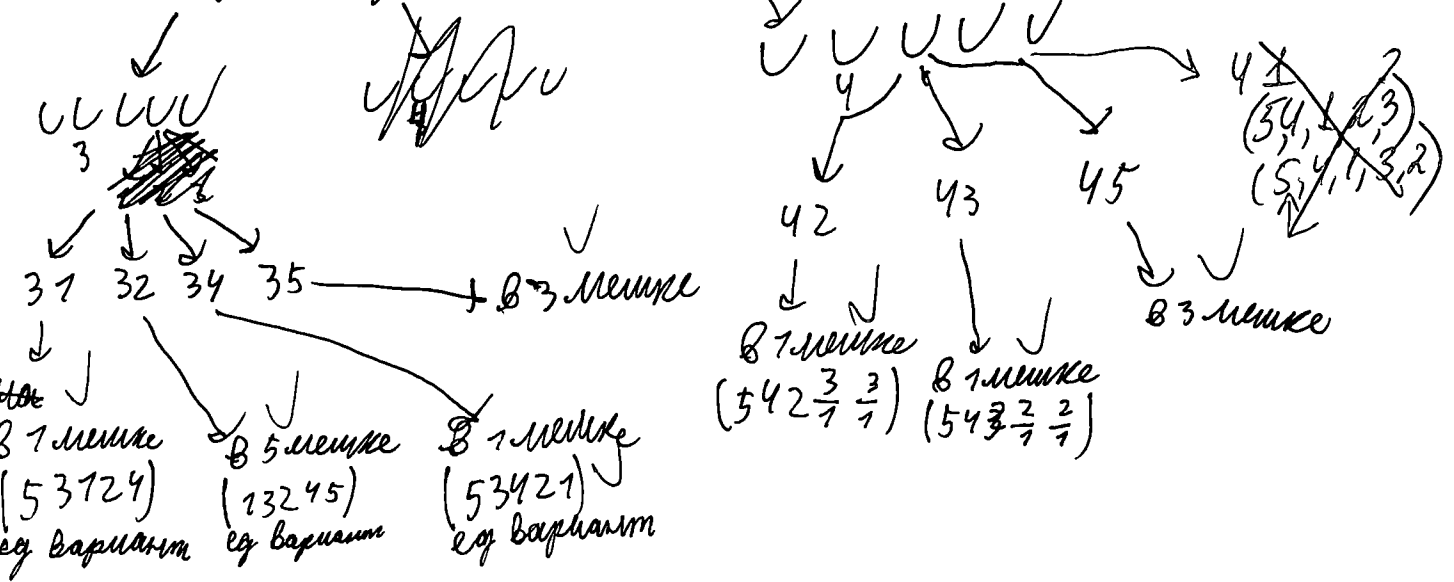 3
31 32 34 35
в 3 мешке
в 1 мешке
(53124)
ед вариант
в 5 мешке
(13245)
ед вариант
в 1 мешке
(53421)
ед вариант
4
42
43
45
41
(5,4,1,2,3)
(5,4,1,3,2)
в 1 мешке
(542 3/1 3/1)
в 1 мешке
(543 2/1 2/1)
в 3 мешке